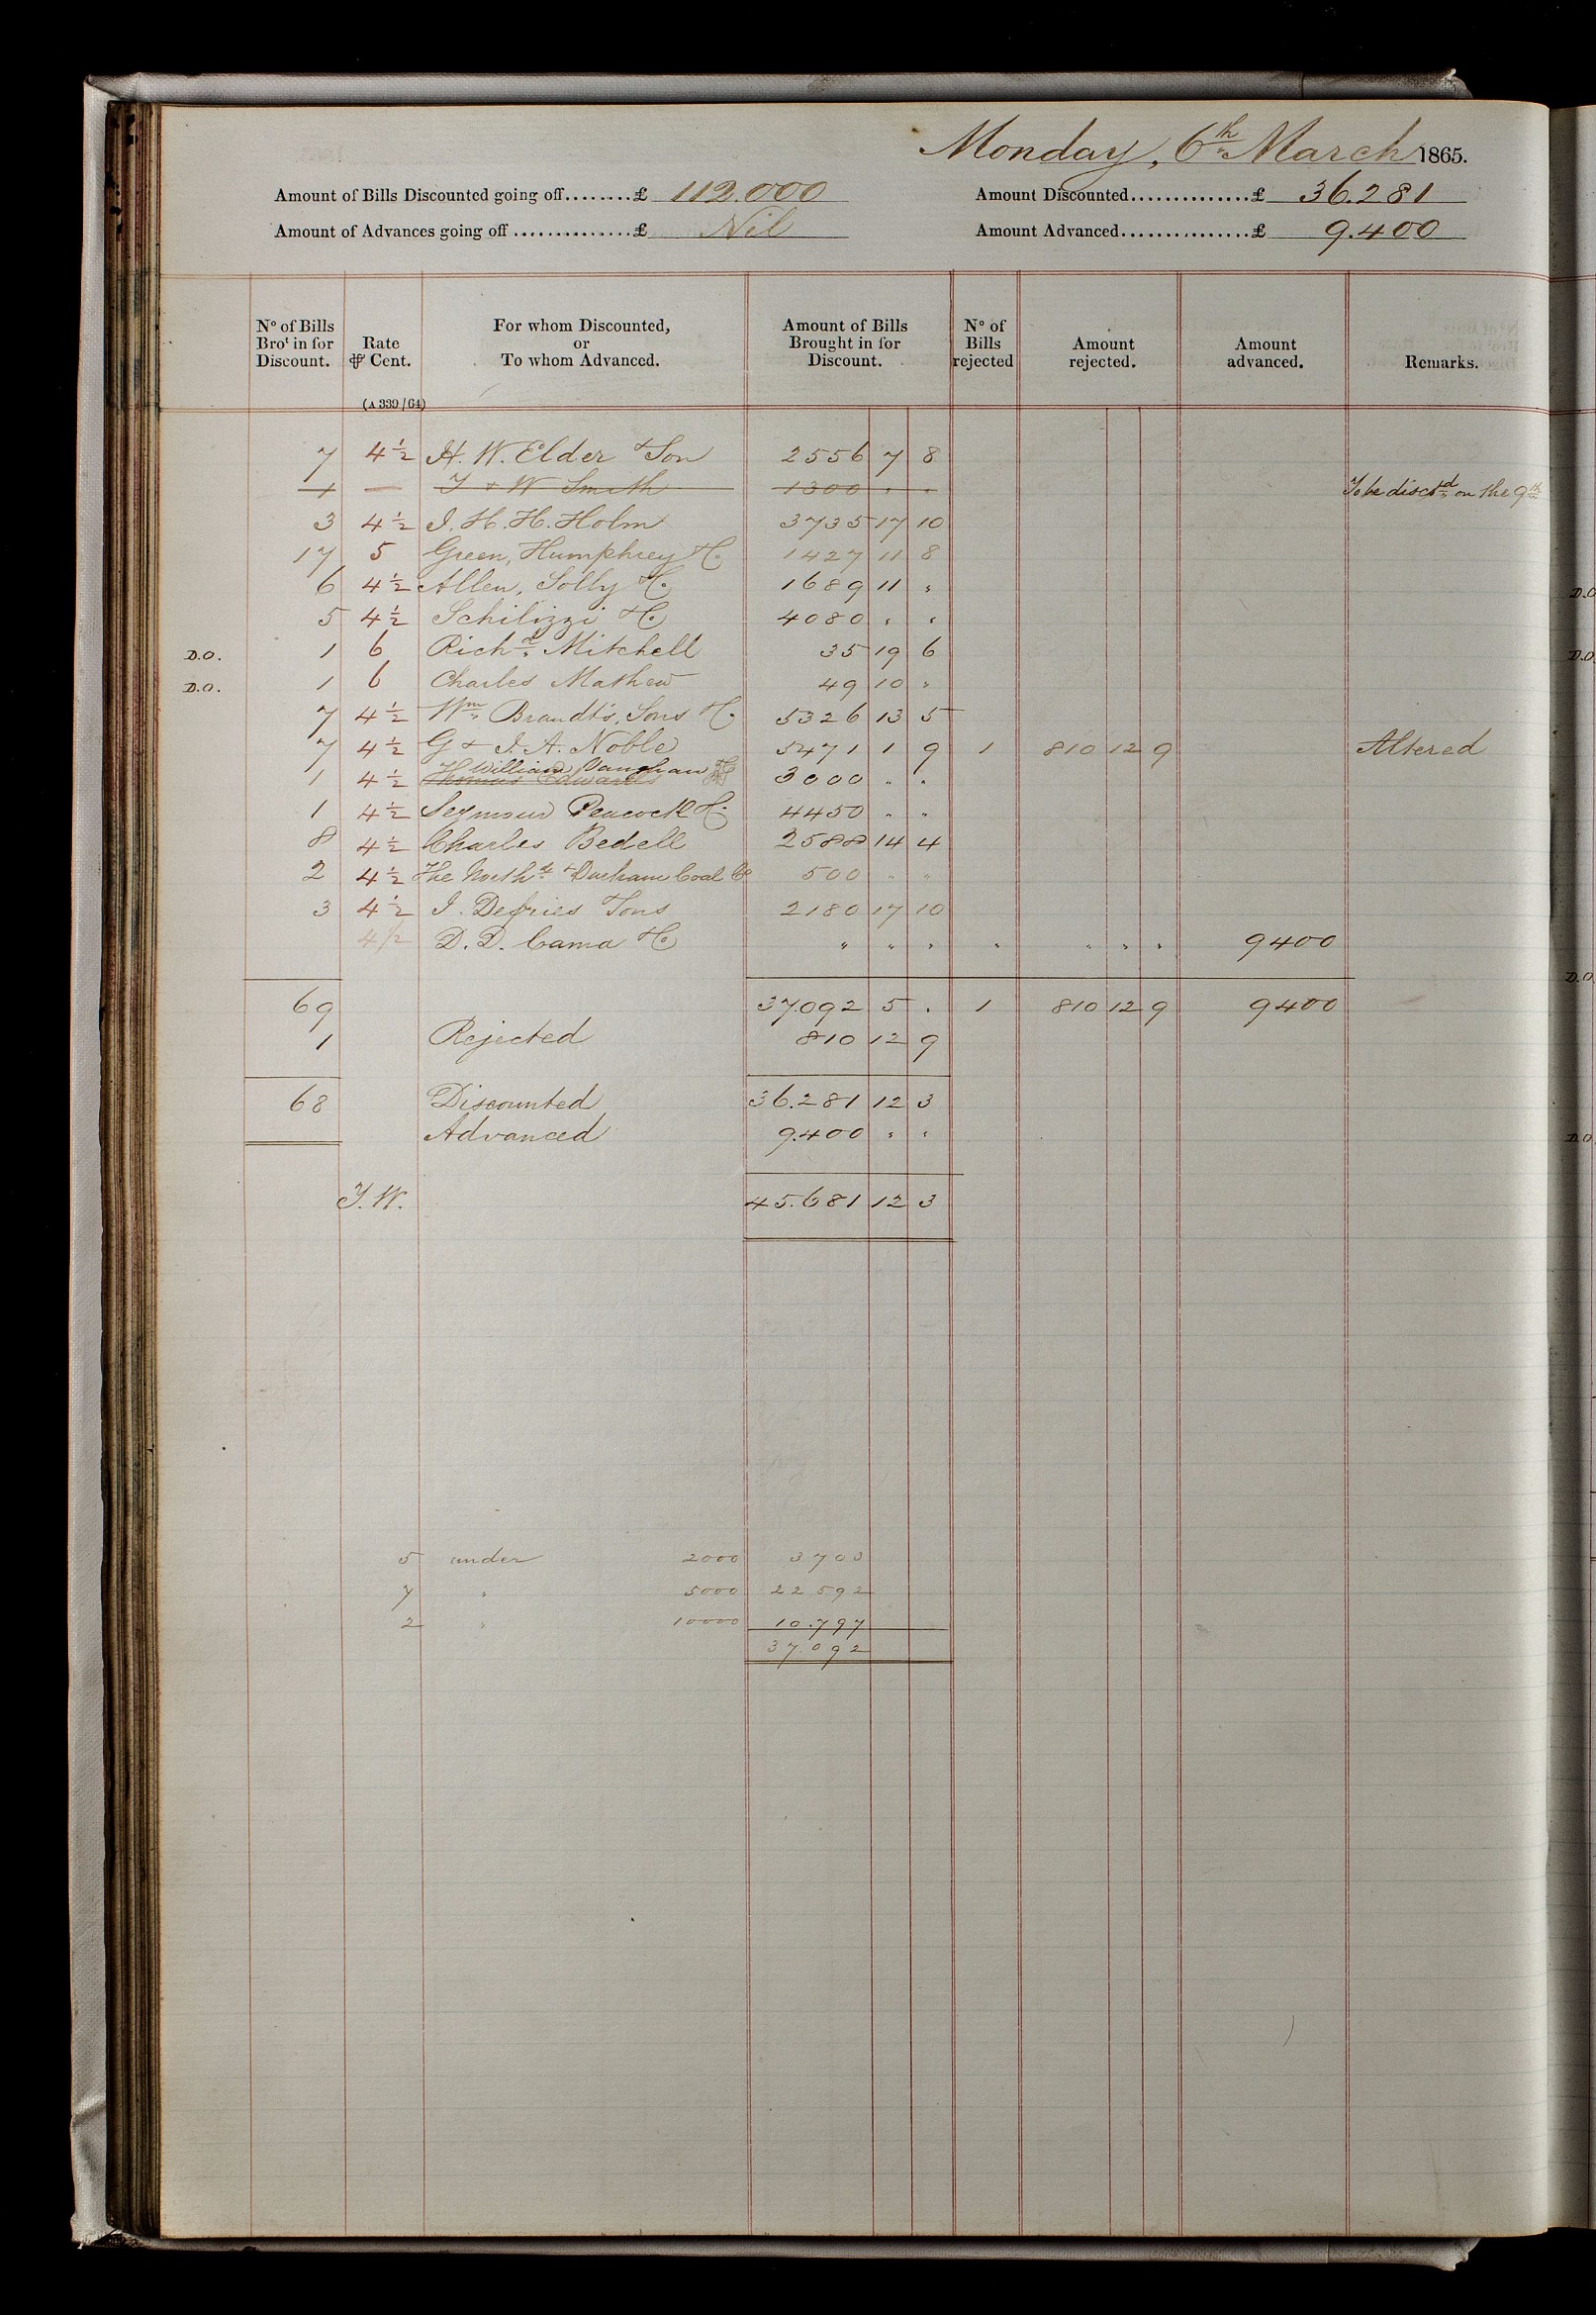 Monday, 6th March 1865.
Amount of Bills Discounted going off........£ 112.000 Amount Discounted..............£ 36.281
Amount of Advances going off...............£ Nil Amount Advanced...............£ 9.400
No of Bills Brot in for Discount. Rate ⅌ Cent. For whom Discounted, or To whom Advanced. Amount of Bills Brought in for Discount. No of Bills rejected Amount rejected. Amount advanced. Remarks.
(A 339/64)
7 4½ H. W. Elder & Son 2556 7 8
1 — T & W Smith 1300 " " To be disctd on the 9th
3 4½ J. H. H. Holm 3735 17 10
17 5 Green, Humphrey & Co 1427 11 8
6 4½ Allen, Solly & Co 1689 11 "
5 4½ Schilizzi & Co 4080 " "
D.O. 1 6 Richd Mitchell 35 19 6
D.O. 1 6 Charles Mathew 49 10 "
7 4½ Wm Brandt's, Sons & Co 5326 13 5
7 4½ G & J. A. Noble 5471 1 9 1 810 12 9 Altered
William Vaughan
1 4½ Thomas Edwards 3000 " "
1 4½ Seymour Peacock & Co 4450 " "
8 4½ Charles Bedell 2588 14 4
2 4½ The Northd & Durham Coal Co 500 " "
3 4½ J. Defries & Sons 2180 17 10
4½ D. D. Cama & Co " " " " " " " 9400
69 37.092 5 " 1 810 12 9 9400
1 Rejected 810 12 9
68 Discounted 36.281 12 3
Advanced 9.400 " "
T. W. 45.681 12 3
5 under 2000 3703
7 " 5000 22592
2 " 10000 10.797
37.092